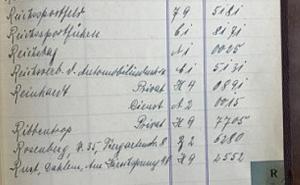 Reichssportfeld J 9 5181
Reichssportführer C i 8191
Reichstag A 1 0025
Reichsverb. d. Automobilindustrie C i 5131
Reinhardt Privat H 4 0891
Dienst A 2 0015
Ribbentrop Privat H 9 7705
Rosenberg, W. 35, Tiergartenstr. 8 B 2 6280
Rust, Dahlem, Am Hirschsprung 48 H 9 2552
R